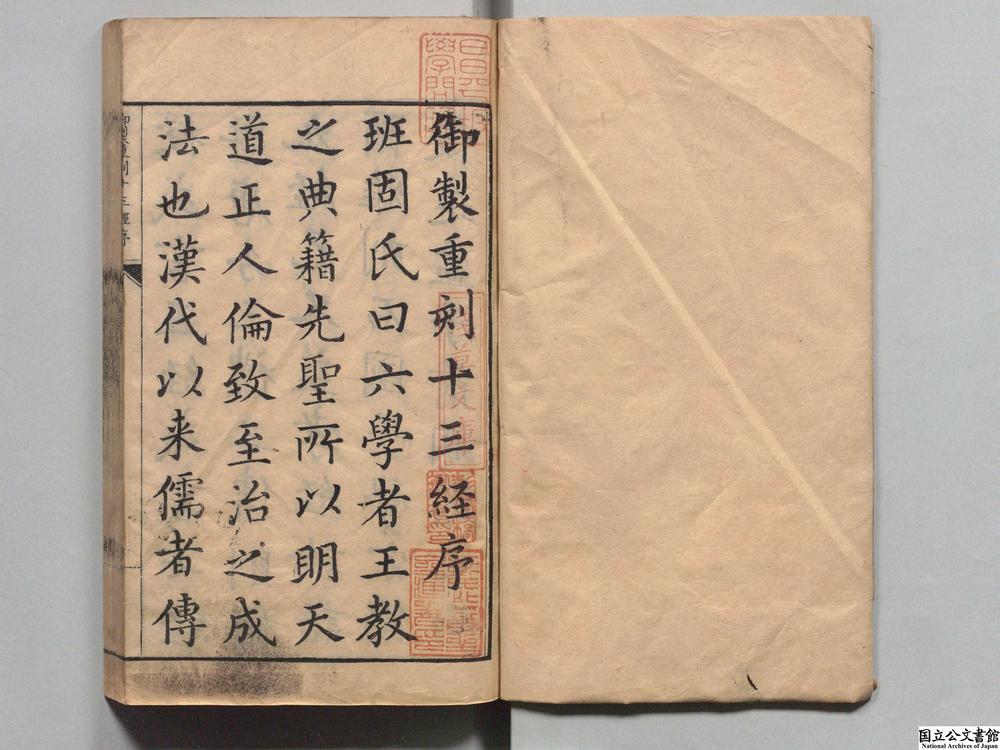 御製重刻十三経序
班固氏曰六學者王教
之典籍先聖所以明天
道正人倫致至治之成
法也漢代以来儒者傳
国立公文書館
National Archives of Japan